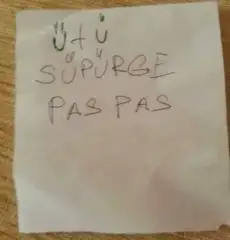 ütü
SÜPÜRGE
PAS PAS